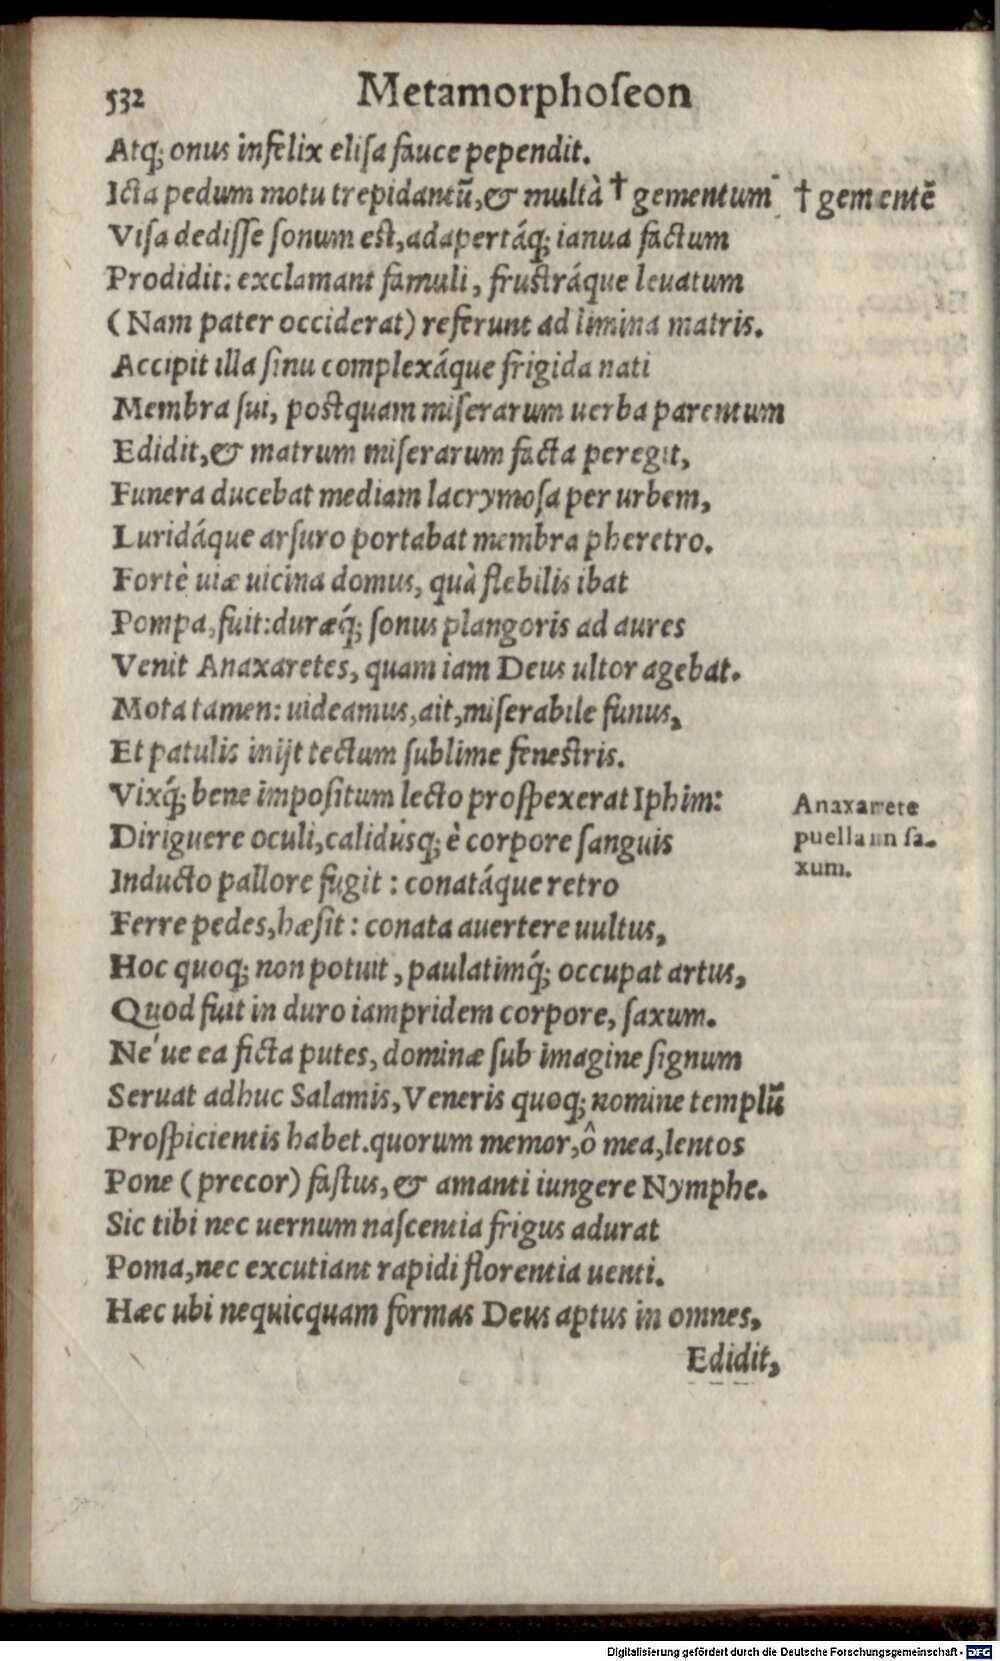 532 Metamorphoſeon
Atq; onus infelix eliſa fauce pependit.
Icta pedum motu trepidantũ,& multà † gementum † gementẽ
Viſa dediſſe ſonum est,adapertáq; ianua factum
Prodidit: exclamant famuli, frustráque leuatum
(Nam pater occiderat) referunt ad limina matris.
Accipit illa ſinu complexáque frigida nati
Membra ſui, postquam miſerarum uerba parentum
Edidit,& matrum miſerarum facta peregit,
Funera ducebat mediam lacrymoſa per urbem,
Luridáque arſuro portabat membra pheretro.
Fortè uiæ uicina domus, quà flebilis ibat
Pompa,fuit:duræq́; ſonus plangoris ad aures
Venit Anaxaretes, quam iam Deus ultor agebat.
Mota tamen: uideamus,ait,miſerabile funus,
Et patulis inijt tectum ſublime fenestris.
Vixq́; bene impoſitum lecto proſpexerat Iphim:
Diriguere oculi,calidúsq; è corpore ſanguis
Inducto pallore fugit : conatáque retro
Ferre pedes,hæſit : conata auertere uultus,
Hoc quoq; non potuit, paulatimq́; occupat artus,
Quod fuit in duro iampridem corpore, ſaxum.
Ne'ue ea ficta putes, dominæ ſub imagine ſignum
Seruat adhuc Salamis, Veneris quoq; nomine templũ
Proſpicientis habet.quorum memor,ô mea,lentos
Pone (precor) faſtus,& amanti iungere Nymphe.
Sic tibi nec uernum naſcentia frigus adurat
Poma,nec excutiant rapidi florentia uenti.
Hæc ubi nequicquam formas Deus aptus in omnes,
Edidit,
Anaxarete
puella in ſa-
xum.
Digitalisierung gefördert durch die Deutsche Forschungsgemeinschaft - DFG